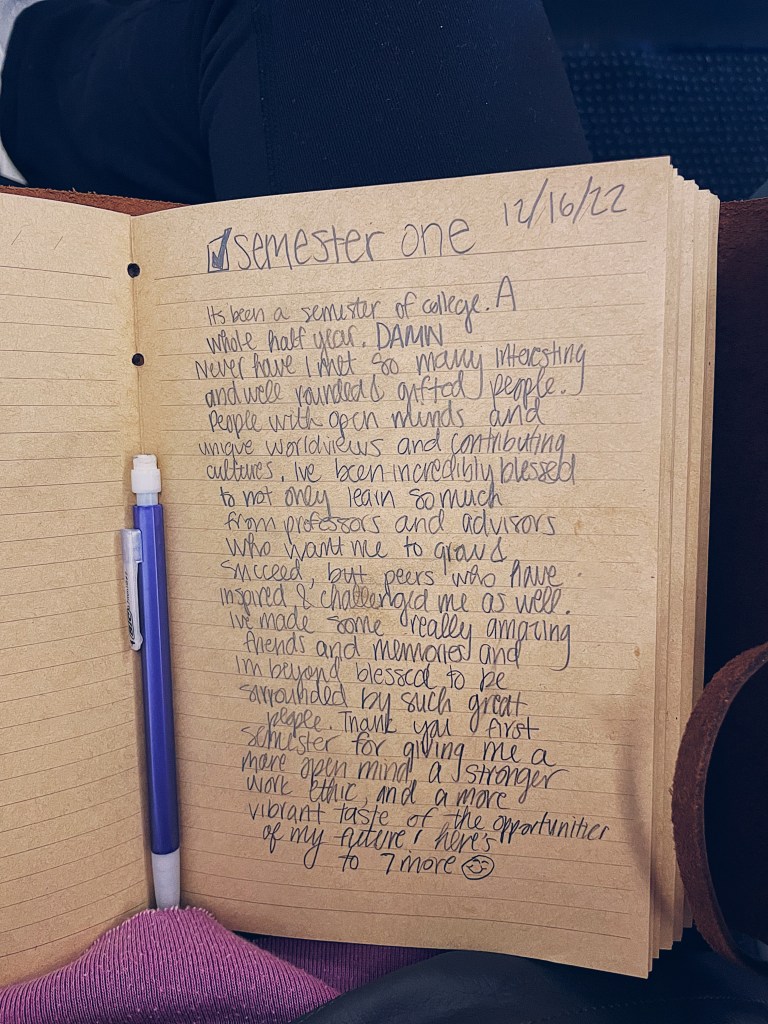 12/16/22
semester one
Its been a semester of college. A
whole half year. DAMN
Never have I met so many interesting
and well rounded & gifted people.
People with open minds and
unique worldviews and contributing
cultures. Ive been incredibly blessed
to not only learn so much
from professors and advisors
who want me to
succeed, but peers who have
inspired & challenged me as well.
Ive made some really amazing
friends and memories and
im beyond blessed to be
surrounded by such great
people. Thank you first
semester for giving me a
more open mind, a stronger
work ethic, and a more
vibrant taste of the opportunities
of my future! here's
to 7 more